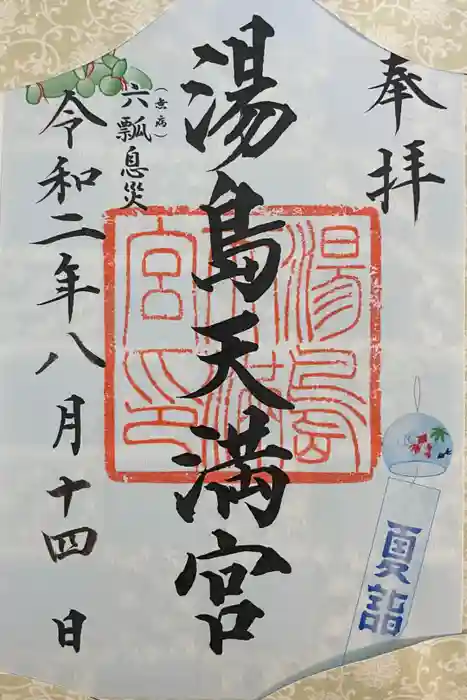 奉拝
湯島天満宮
湯島天満宮印
(無病)
六瓢息災
令和二年八月十四日
夏詣